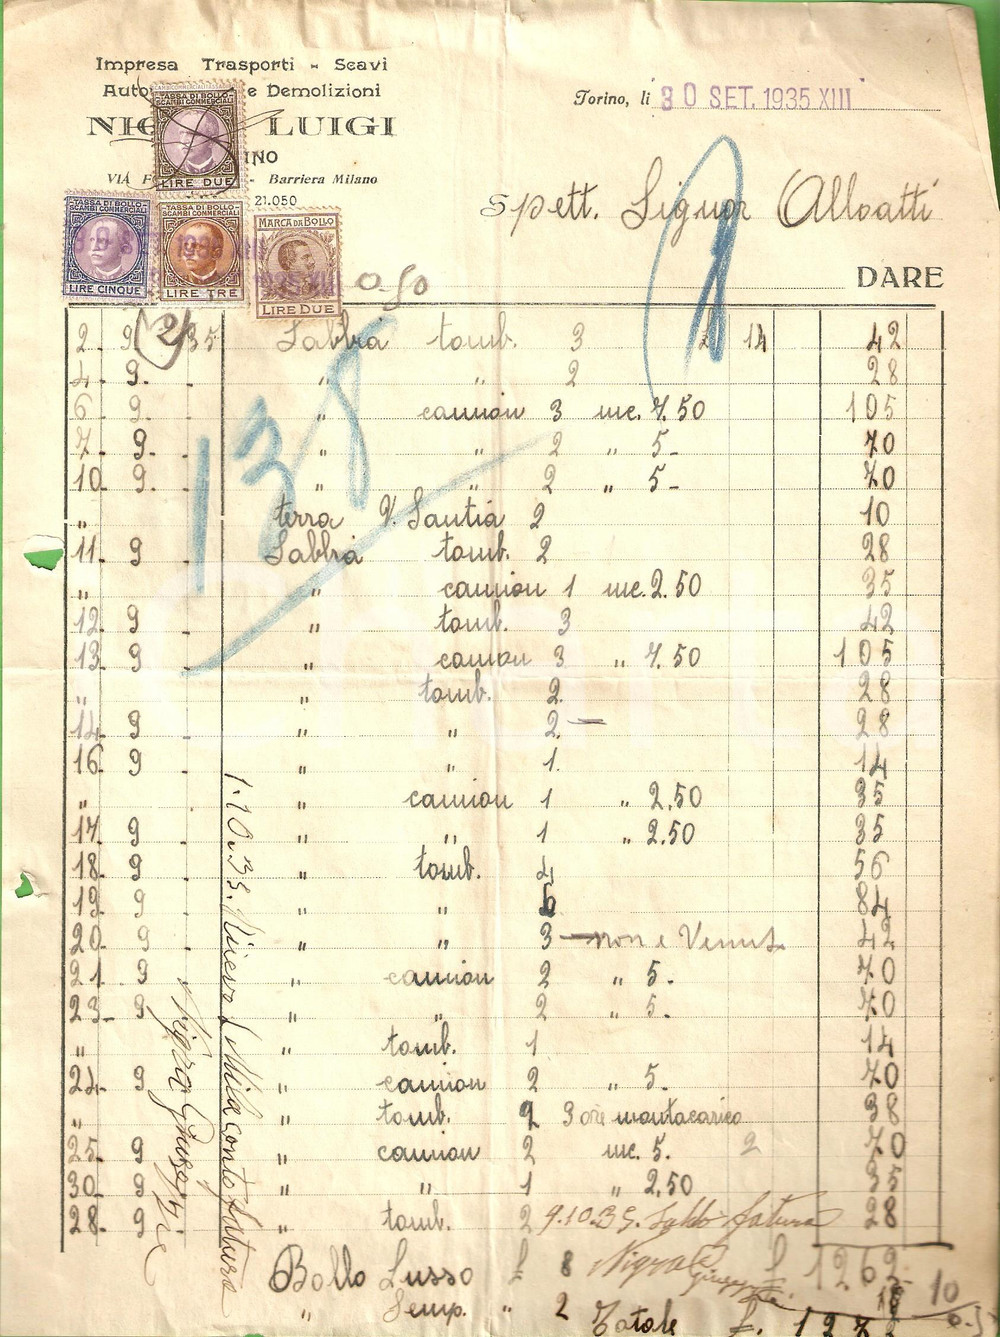 Impresa Trasporti - Scavi
Auto e Demolizioni
LUIGI
INO
VIA F - Barriera Milano
21.050
TASSA DI BOLLO SCAMBI COMMERCIALI
LIRE DUE
TASSA DI BOLLO SCAMBI COMMERCIALI
LIRE CINQUE
TASSA DI BOLLO SCAMBI COMMERCIALI
LIRE TRE
MARCA DA BOLLO
LIRE DUE
Torino, li 30 SET. 1935 XIII
Spett. Signor Alloatti
0.50
DARE
138
2 9 35 Sabbia tomb. 3 £ 14 42
4. 9. " " 2 28
6 9. " camion 3 mc. 7.50 105
7 9. " " 2 " 5- 70
10. 9. " " 2 " 5- 70
" terra V. Santia 2 10
11. 9 Sabbia tomb. 2 28
" " camion 1 mc. 2.50 35
12. 9 " tomb. 3 42
13. 9 " camion 3 " 7.50 105
" " tomb. 2. 28
14. 9 " " 2. — 28
16. 9 " " 1. 14
" " camion 1 " 2,50 35
17. 9 " " 1 " 2.50 35
18. 9 " tomb. 4 56
19. 9 " " 6 84
20. 9 " " 3 — non e 42
21. 9 " camion 2 " 5- 70
23- 9 " " 2 " 5- 70
" " tomb. 1 14
24. 9 " camion 2 " 5- 70
" " tomb. 2 3 ore montacarico 38
25. 9 " camion 2 mc. 5. 2 70
30. 9 " " 1 " 2,50 35
28. 9 " tomb. 2 9.10.35. Saldo fattura 28
1.10.35. Ricevo £ Mila conto fattura
Bollo Lusso £ 8 £ 1262
" Semp. " 2
10
Totale £. 127